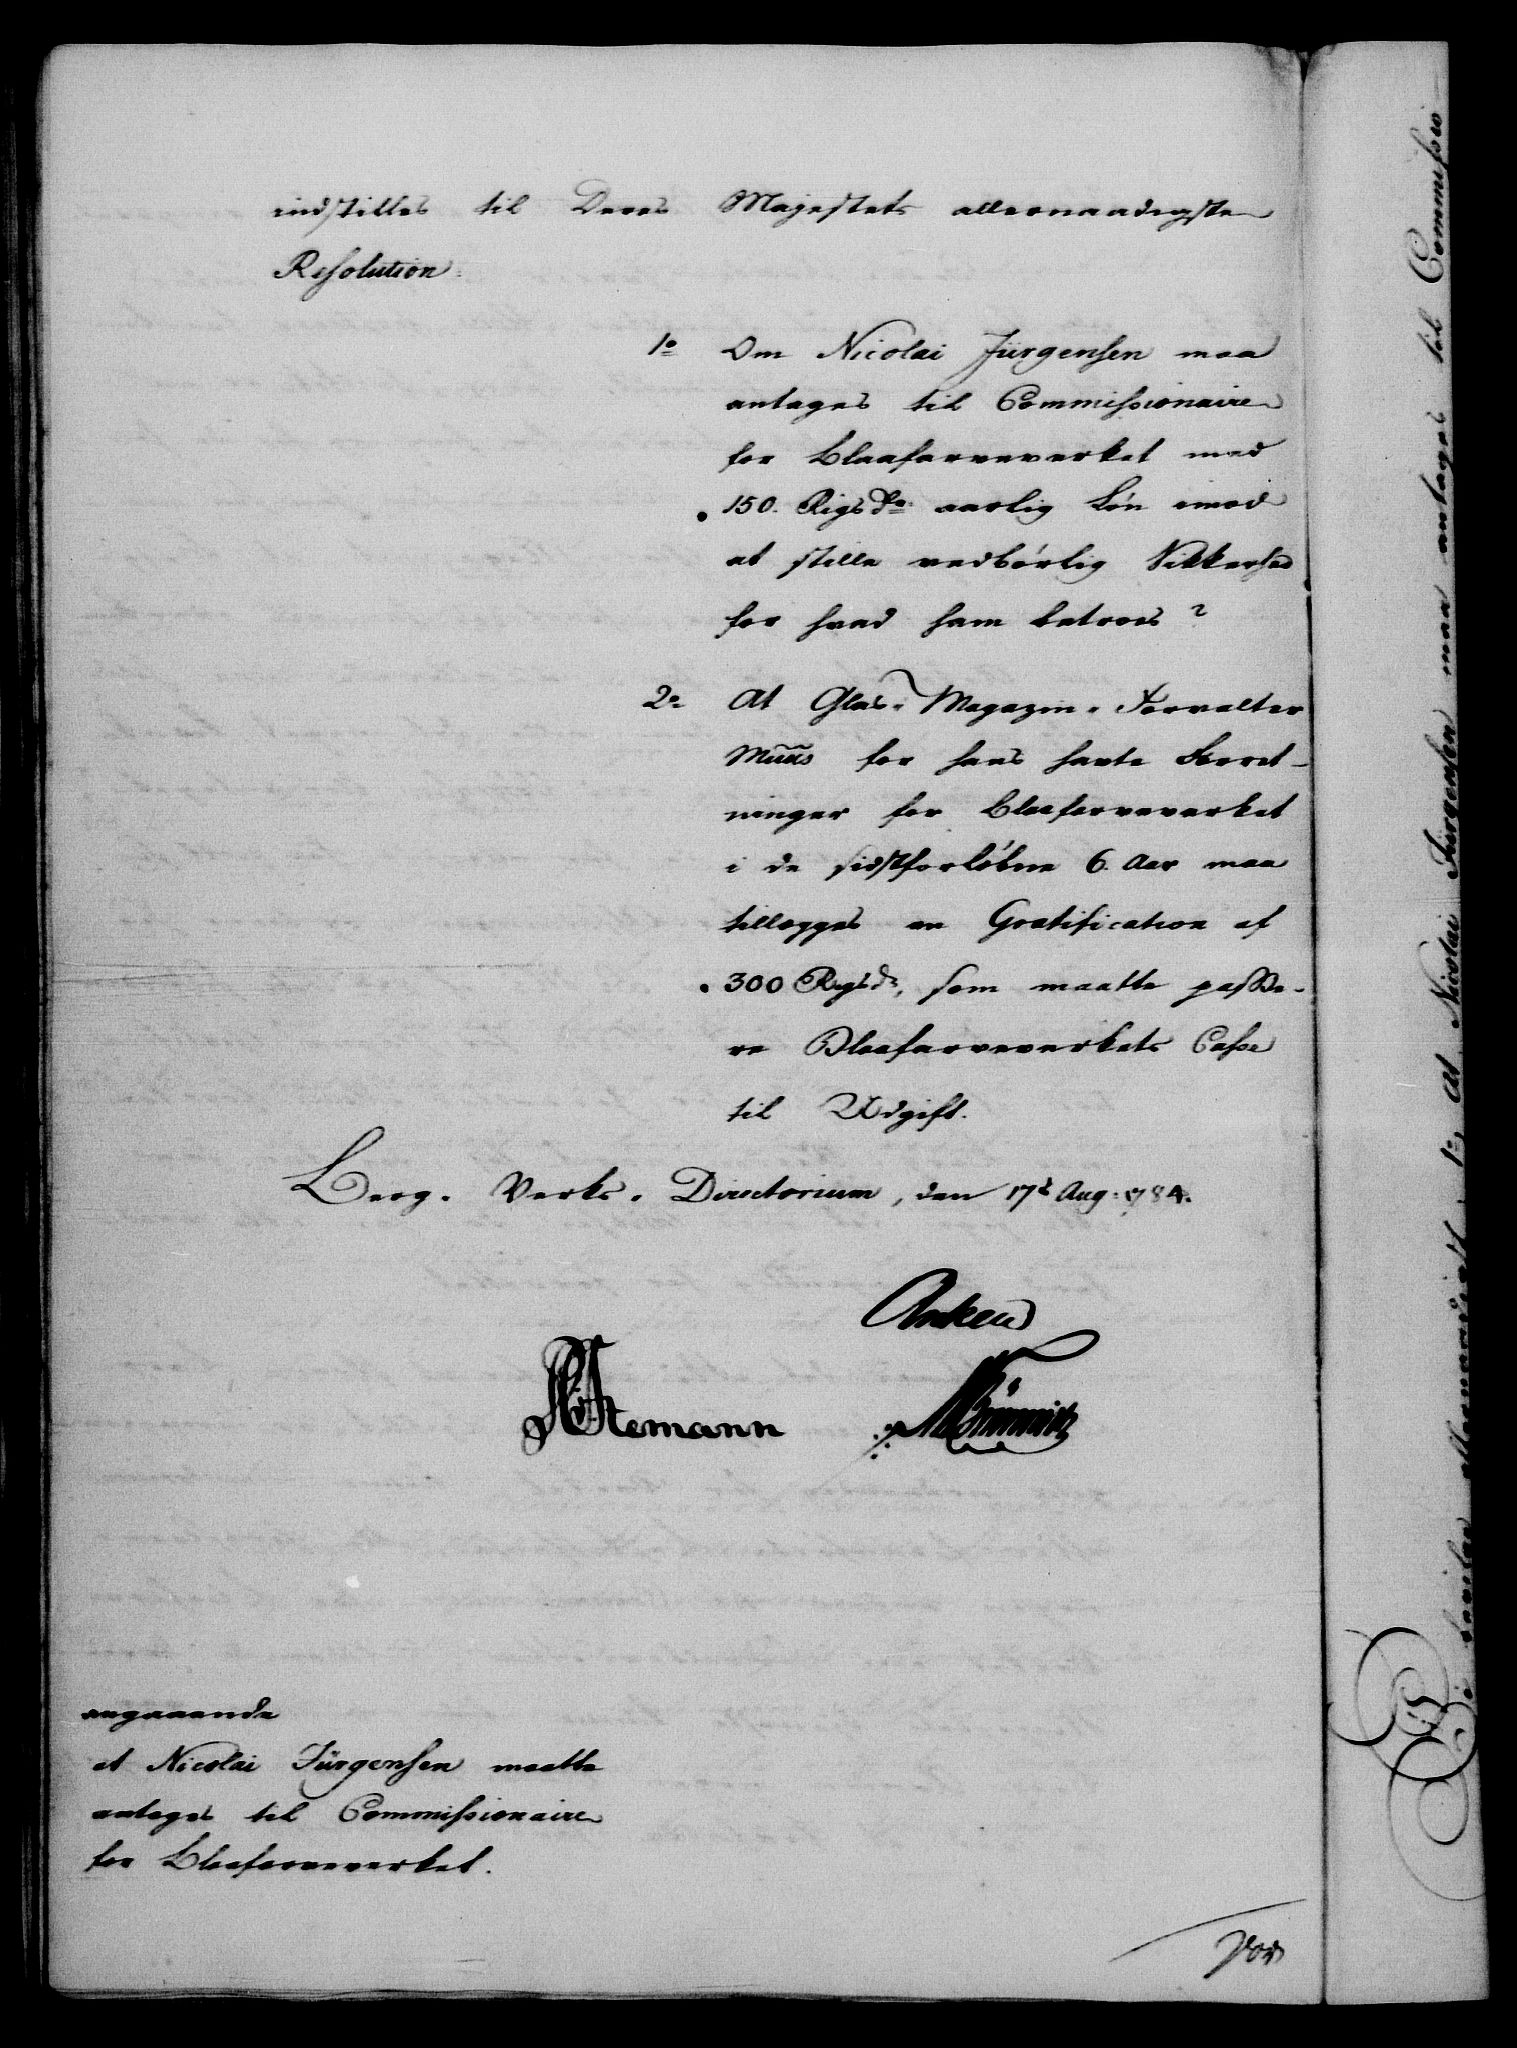 indstilles til Deres Majestets allernaadigste
Resolution.
1º Om Nicolai Jürgensen maa
antages til Commissionaire
for Blaafarveverket med
150. Rigsdr. aarlig Løn imod
at stille vedbørlig Sikkerhed
for hvad ham betroes?
2º At Glas-Magazin-Forvalter
Muus for hans havte Forret-
ninger for Blaafarveverket
i de sidstforløbne 6. Aar maa
tillægges en Gratification af
300 Rigsdr, som maatte passe-
re Blaafarveverkets Casse
til Udgift.
Berg-Verks-Directorium, den 17d Aug: 1784.
Anker
Stemann
angaaende
at Nicolai Jürgensen maatte
antages til Commissionaire
for Blaafarveverket.
Vi bevilge allernaadigst, 1º, at Nicolai Jürgensen maa antages til Commissio-